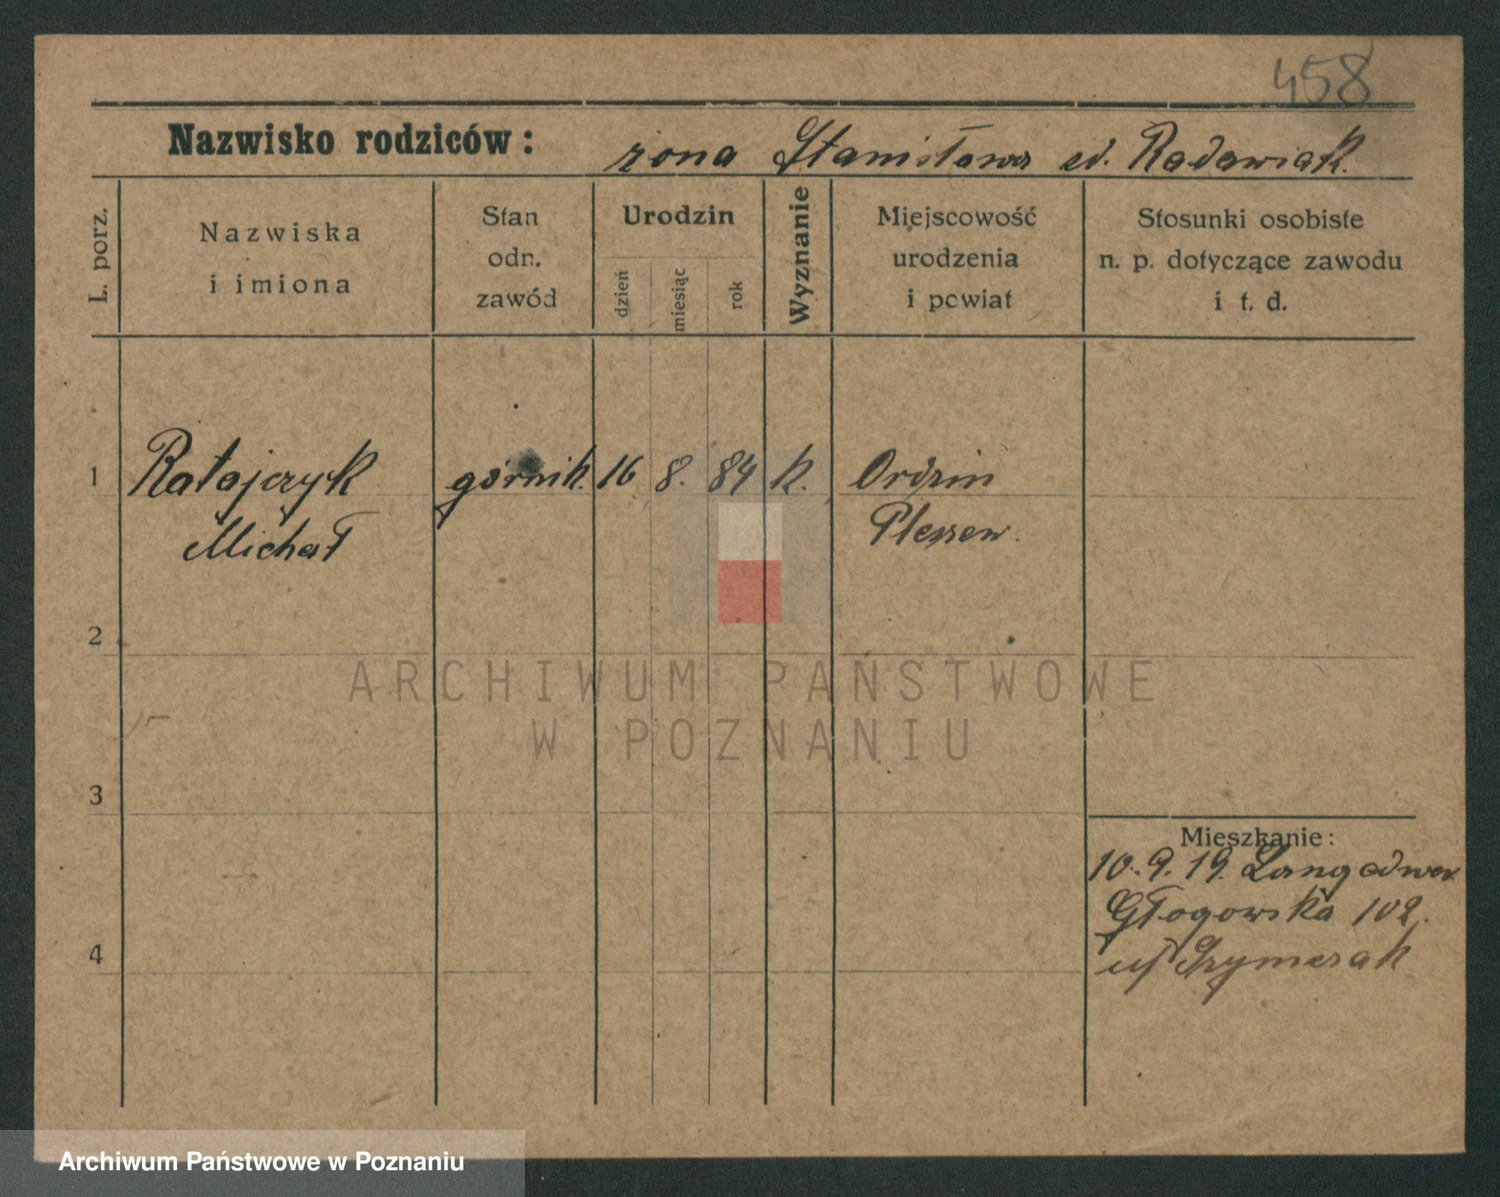 458
Nazwisko rodziców: żona Stanisława zd. Radawiak.
L. porz.
Nazwiska
i imiona
Stan
odn.
zawód
Urodzin
dzień
miesiąc
rok
Wyznanie
Miejscowość
urodzenia
i powiat
Stosunki osobiste
n. p. dotyczące zawodu
i t. d.
1 Ratajczyk górnik. 16 8. 84 k. Ordzin
Michał Pleszew.
2
ARCHIWUM PAŃSTWOWE
W POZNANIU
3
Mieszkanie:
10.9.19.
Głogowska 102.
4
Archiwum Państwowe w Poznaniu